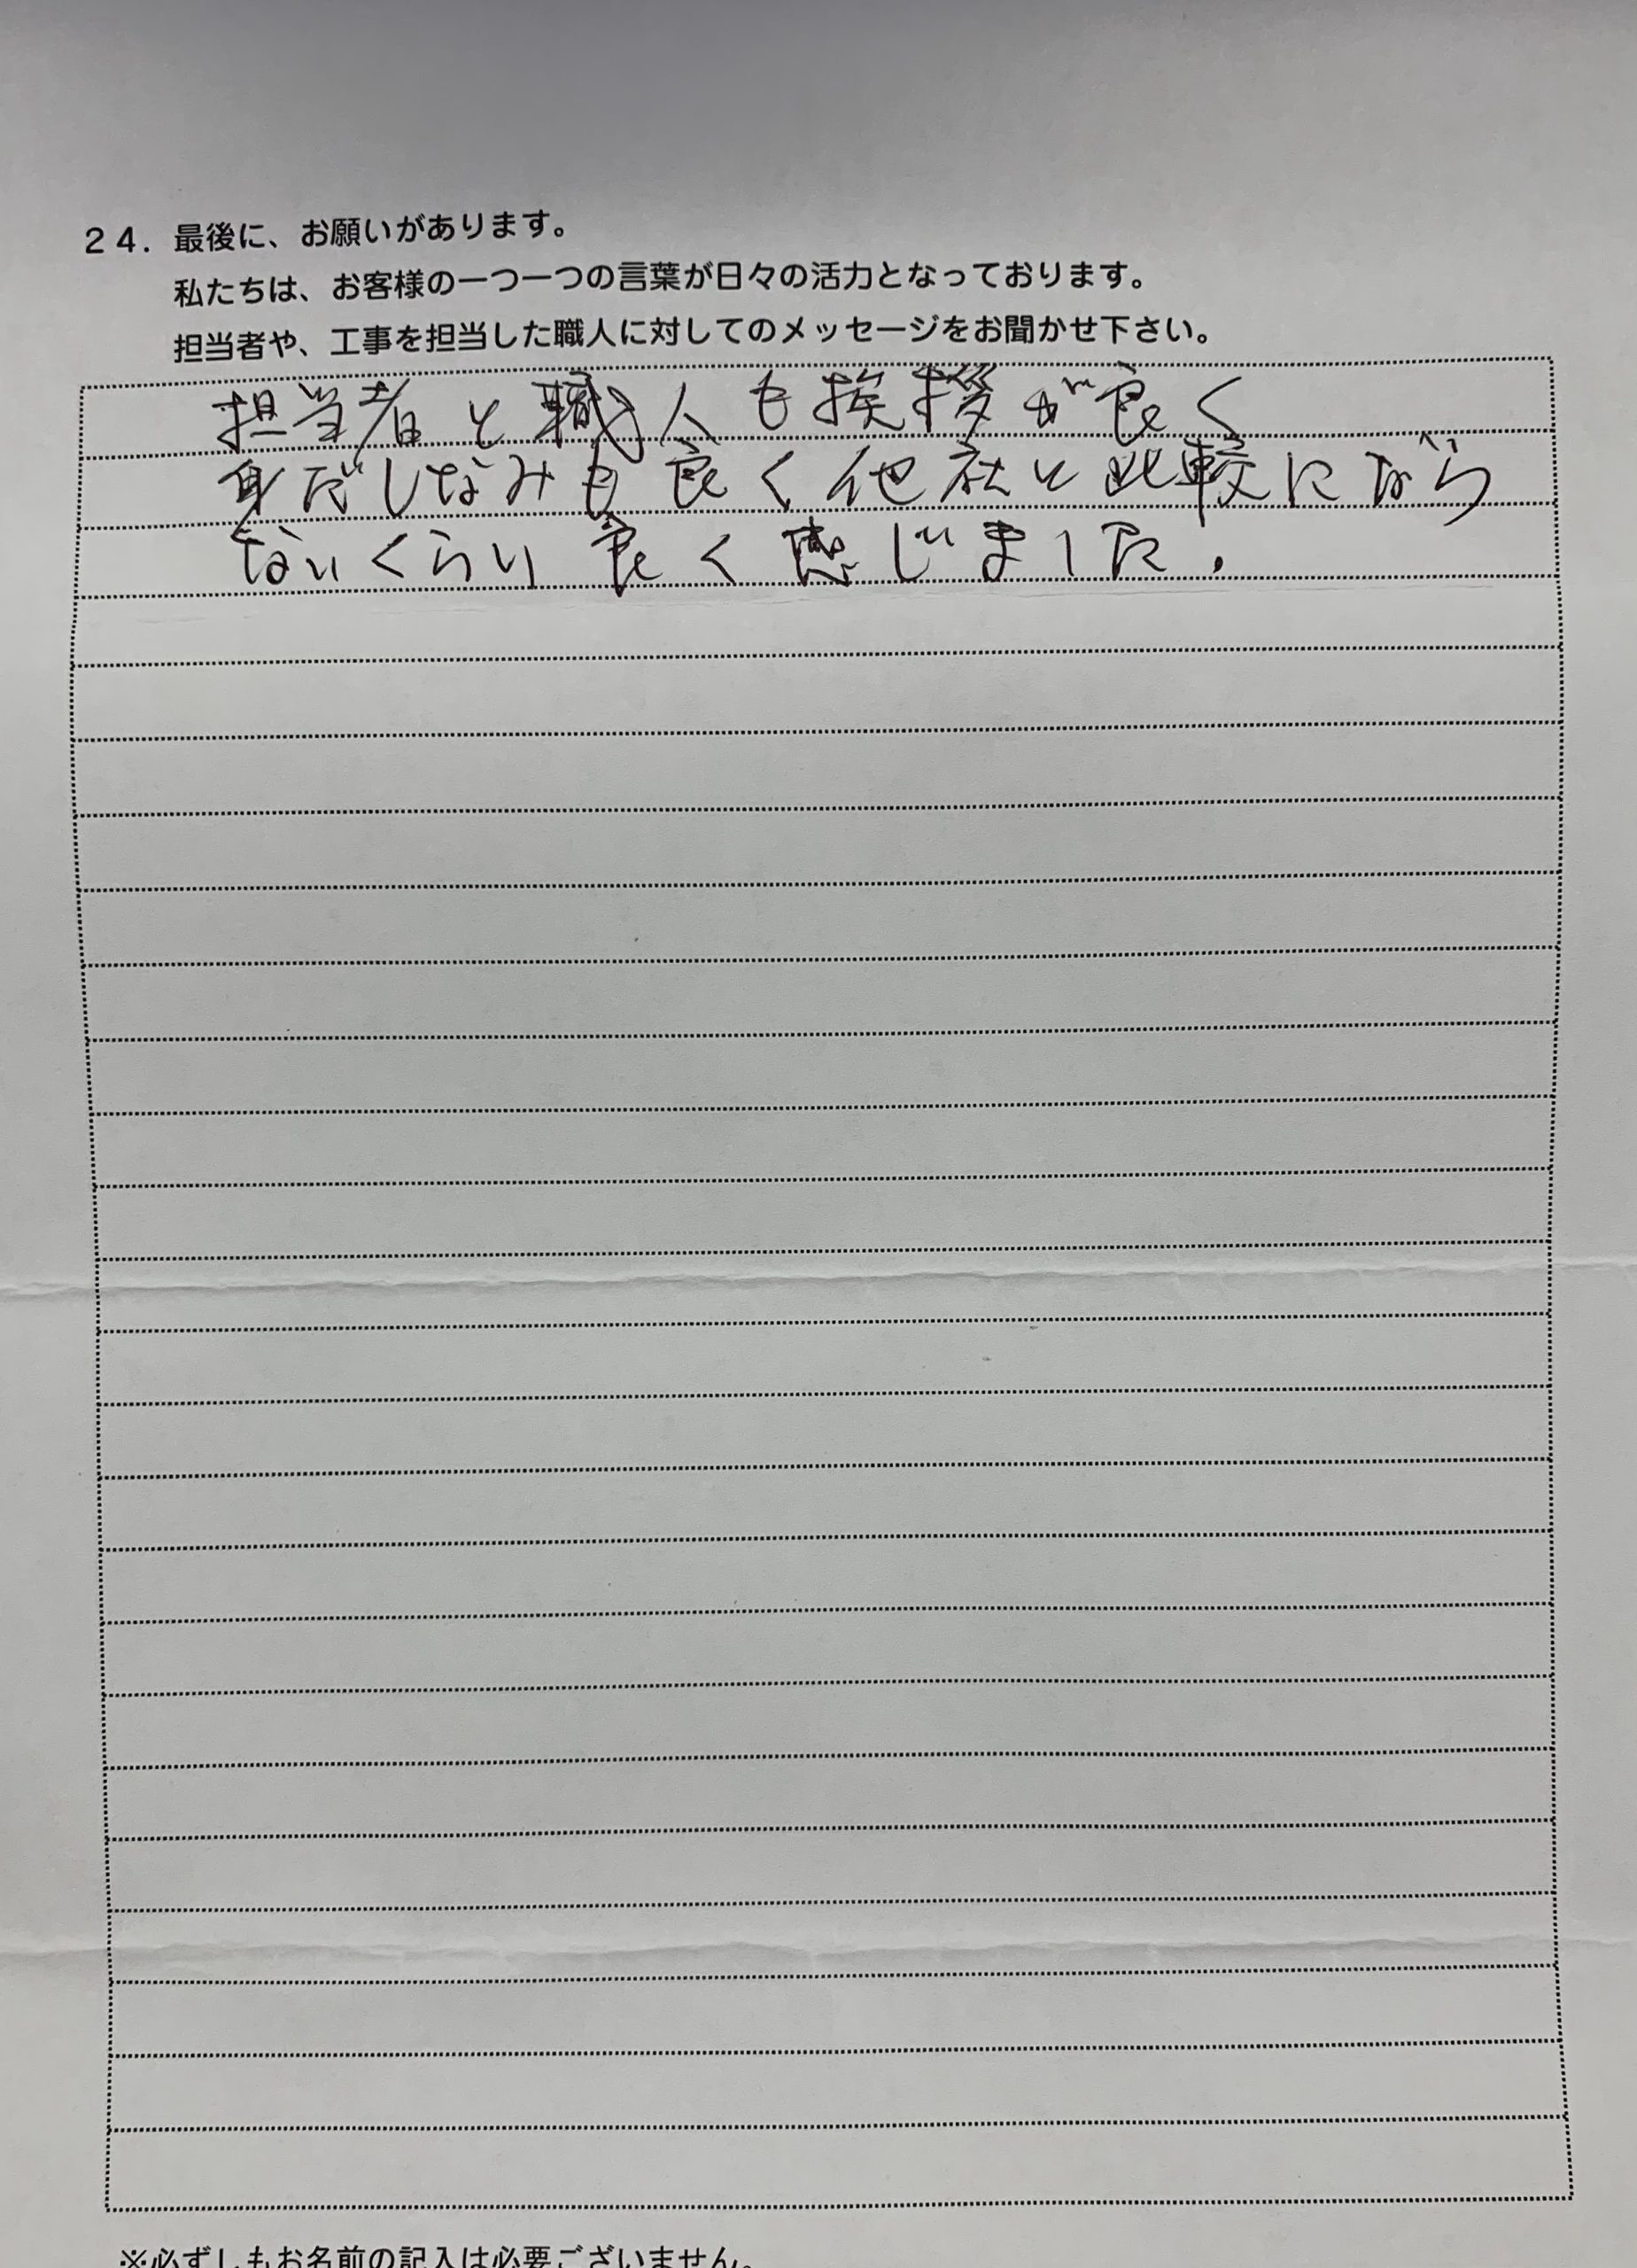 24. 最後に、お願いがあります。
私たちは、お客様の一つ一つの言葉が日々の活力となっております。
担当者や、工事を担当した職人に対してのメッセージをお聞かせ下さい。
担当者と職人も挨拶が良く
身だしなみも良く他社と比較になら
ないくらい良く感じました.
※必ずしもお名前の記入は必要ございません。